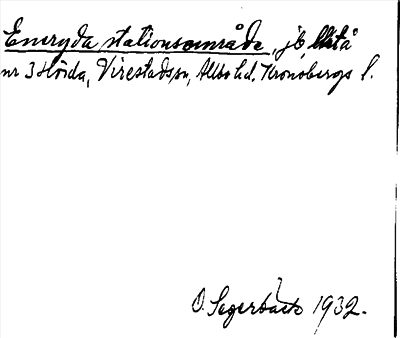 Eneryda stationsområde, jb, Metå
nr 3 Hörda, Virestads sn, Allbo hd. Kronobergs l.
O. Segerbäck 1932.